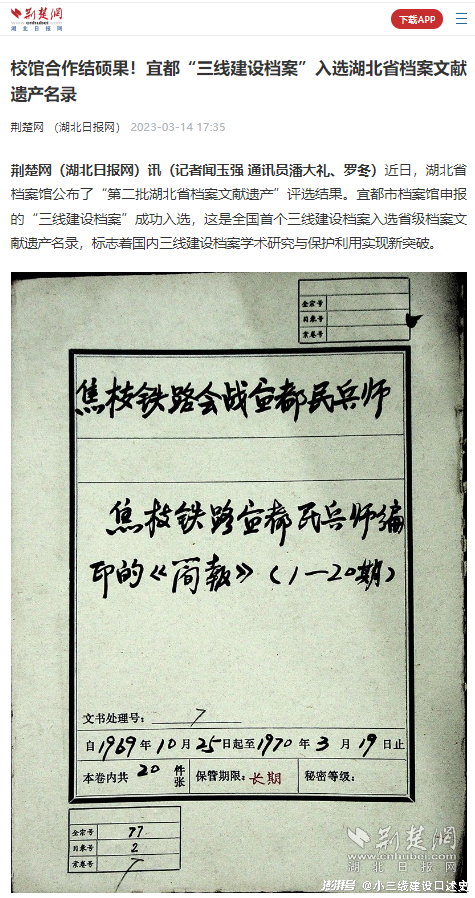 荆楚网
www.cnhubei.com
湖北日报网
下载APP
校馆合作结硕果！宜都“三线建设档案”入选湖北省档案文献
遗产名录
荆楚网 （湖北日报网） 2023-03-14 17:35
荆楚网（湖北日报网）讯（记者闻玉强 通讯员潘大礼、罗冬）近日，湖北省
档案馆公布了“第二批湖北省档案文献遗产”评选结果。宜都市档案馆申报
的“三线建设档案”成功入选，这是全国首个三线建设档案入选省级档案文
献遗产名录，标志着国内三线建设档案学术研究与保护利用实现新突破。
全宗号
目录号
案卷号
焦枝铁路会战宜都民兵师
焦枝铁路宜都民兵师编
印的《简报》（1—20期）
文书处理号： 7
自1969年10月25日起至1970年3月19日止
本卷内共 20 件张 保管期限：长期 秘密等级：
全宗号 77
目录号 2
案卷号 7
荆楚网
www.cnhubei.com
湖北日报网
澎湃号 @小三线建设口述史